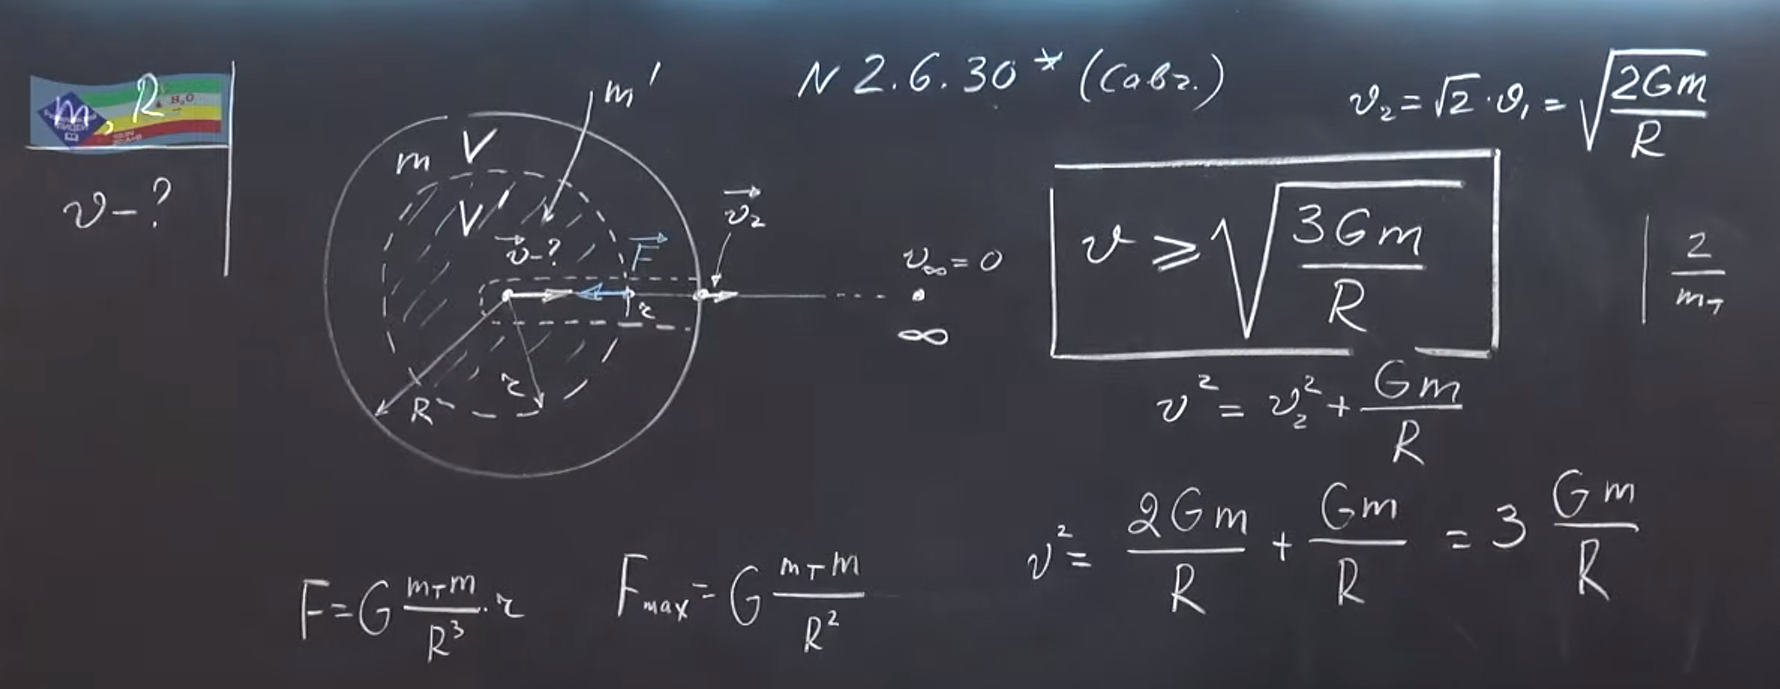 N 2.6.30* (Савч.)
m, R
H₂O
v - ?
m'
m
V
V'
v⃗ - ?
F⃗
r
r
R
v⃗₂
v∞ = 0
∞
v₂ = √2 · v₁ = √(2Gm/R)
v ≥ √(3Gm/R)
| 2/m_T
v² = v₂² + Gm/R
v² = 2Gm/R + Gm/R = 3 Gm/R
F = G m_T m/R³ · r
F_max = G m_T m/R²